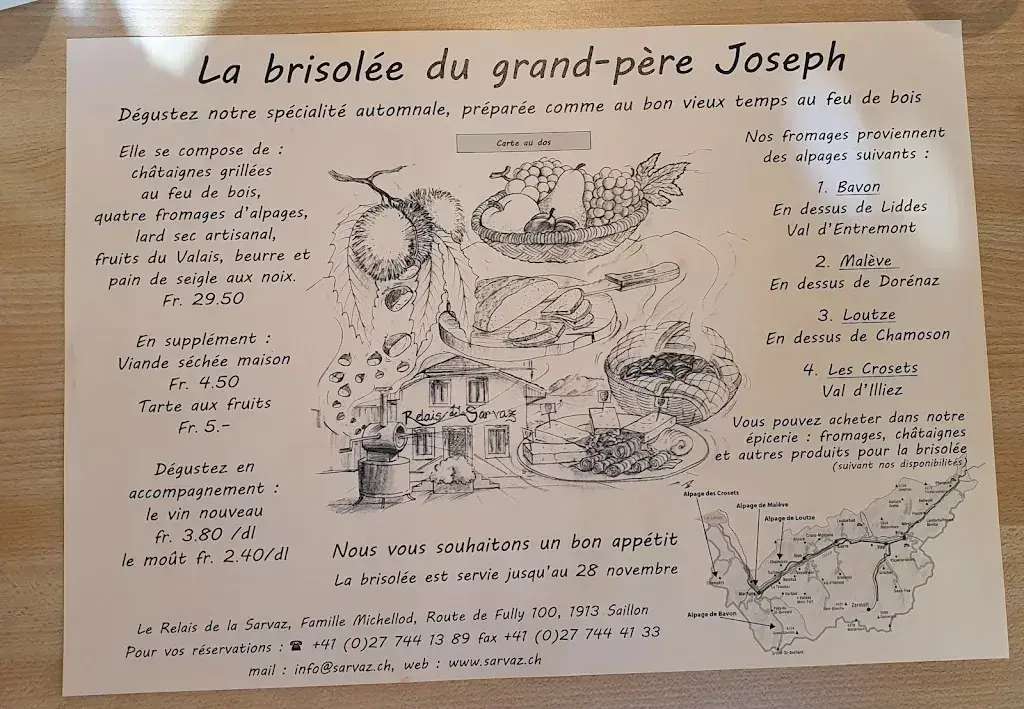 La brisolée du grand-père Joseph
Dégustez notre spécialité automnale, préparée comme au bon vieux temps au feu de bois
Carte au dos
Elle se compose de :
châtaignes grillées
au feu de bois,
quatre fromages d'alpages,
lard sec artisanal,
fruits du Valais, beurre et
pain de seigle aux noix.
Fr. 29.50
En supplément :
Viande séchée maison
Fr. 4.50
Tarte aux fruits
Fr. 5.-
Dégustez en
accompagnement :
le vin nouveau
fr. 3.80 /dl
le moût fr. 2.40/dl
Relais de la Sarvaz
Nos fromages proviennent
des alpages suivants :
1. Bavon
En dessus de Liddes
Val d'Entremont
2. Malève
En dessus de Dorénaz
3. Loutze
En dessus de Chamoson
4. Les Crosets
Val d'Illiez
Vous pouvez acheter dans notre
épicerie : fromages, châtaignes
et autres produits pour la brisolée
(suivant nos disponibilités)
Alpage des Crosets
Alpage de Malève
Alpage de Loutze
Alpage de Bavon
Zermatt
Nous vous souhaitons un bon appétit
La brisolée est servie jusqu'au 28 novembre
Le Relais de la Sarvaz, Famille Michellod, Route de Fully 100, 1913 Saillon
Pour vos réservations : ☎ +41 (0)27 744 13 89 fax +41 (0)27 744 41 33
mail : info@sarvaz.ch, web : www.sarvaz.ch